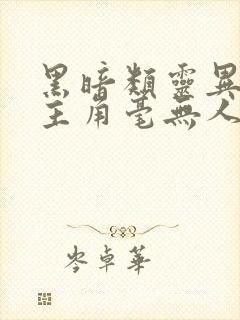 黑暗類靈異
主角毫無人
岑卓華